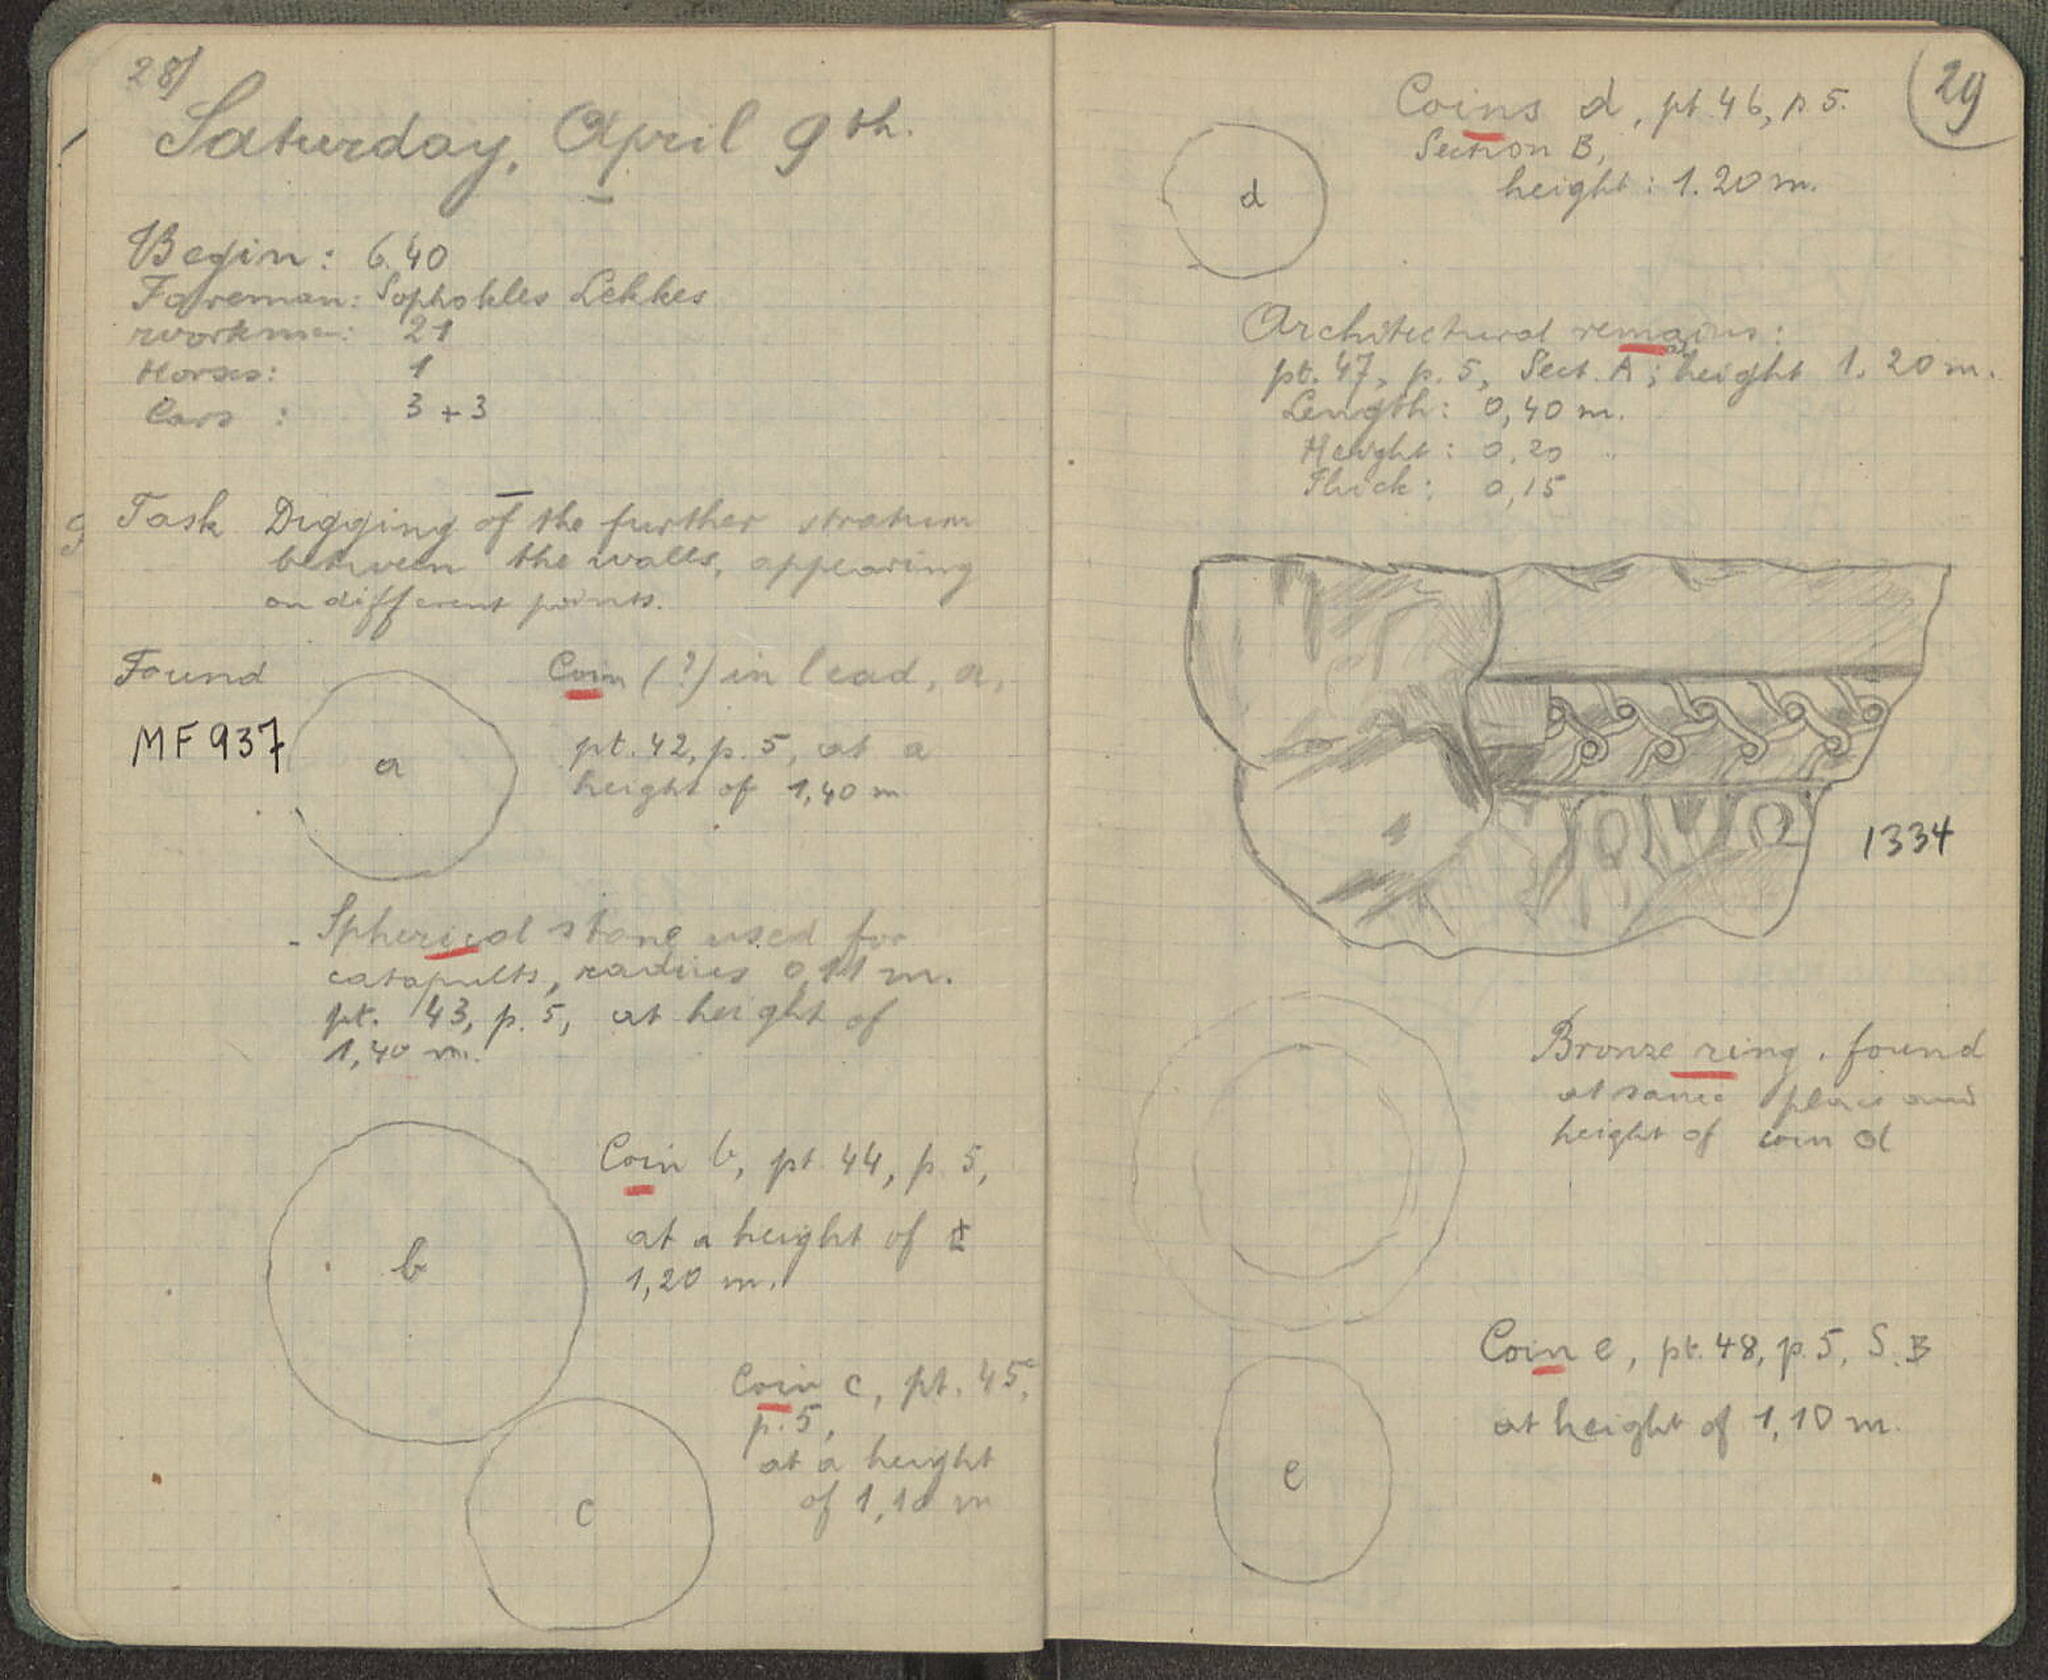 28)
Saturday, April 9th.
Begin: 6.40
Foreman: Sophokles Lekkes
workmen: 21
Horses: 1
Cars : 3 + 3
Task Digging of the further stratum
between the walls, appearing
on different points.
Found
MF 937
a
Coin (?) in lead, a,
pt. 42, p. 5, at a
height of 1,40 m
- Spherical stone used for
catapults, radius 0,11 m.
pt. 43, p. 5, at height of
1,40 m.
b
Coin b, pt. 44, p. 5,
at a height of ±
1,20 m.
c
Coin c, pt. 45,
p. 5,
at a height
of 1,10 m
29
Coins d, pt. 46, p. 5.
Section B,
height: 1.20 m.
d
Architectural remains:
pt. 47, p. 5, Sect. A; at height 1.20 m.
Length: 0,40 m.
Height: 0,20 "
Thick: 0,15
1334
Bronze ring, found
at same place and
height of coin d
Coin e, pt. 48, p. 5, S. B
at height of 1,10 m.
e